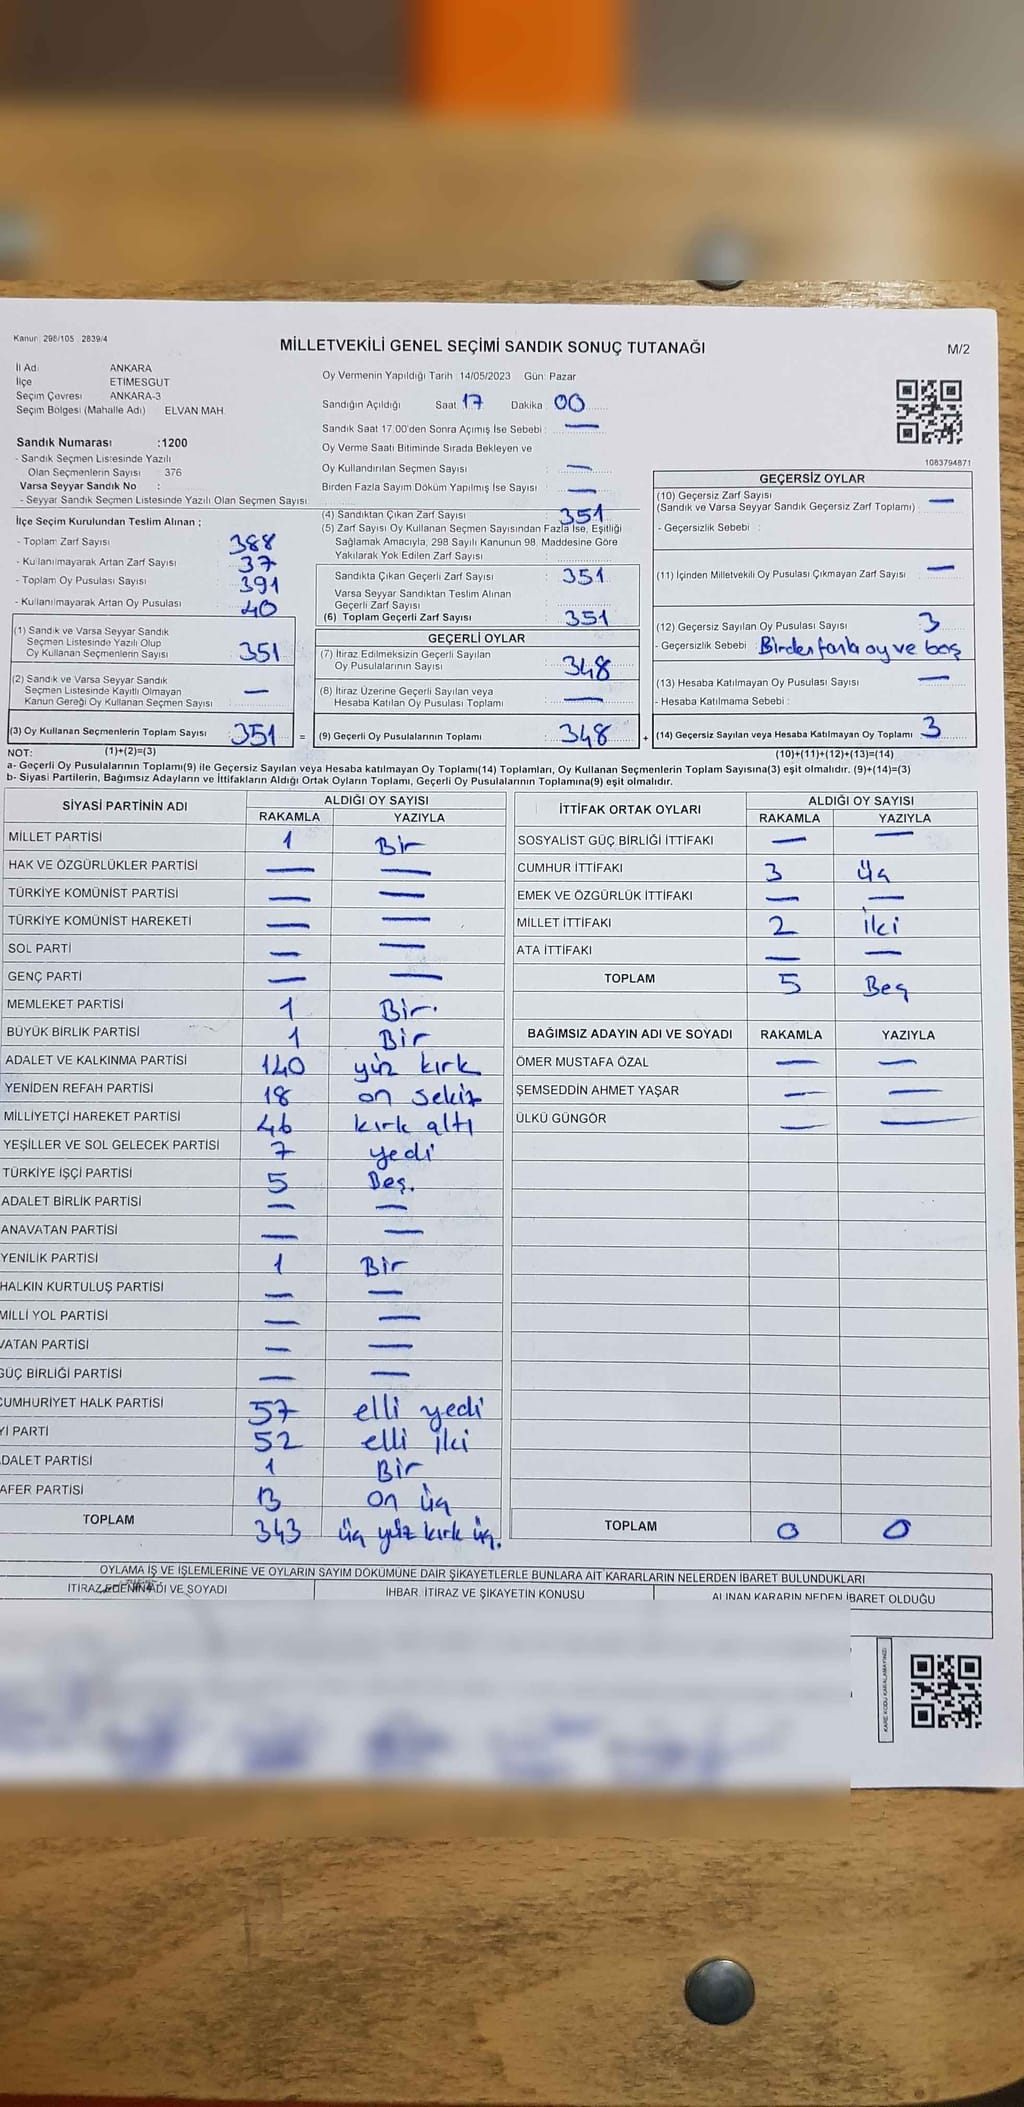 Kanun 298/105 2839/4
MİLLETVEKİLİ GENEL SEÇİMİ SANDIK SONUÇ TUTANAĞI
M/2
İl Adı ANKARA
İlçe ETİMESGUT
Seçim Çevresi ANKARA-3
Seçim Bölgesi (Mahalle Adı) ELVAN MAH.
Sandık Numarası :1200
- Sandık Seçmen Listesinde Yazılı
Olan Seçmenlerin Sayısı 376
Varsa Seyyar Sandık No :
- Seyyar Sandık Seçmen Listesinde Yazılı Olan Seçmen Sayısı:
İlçe Seçim Kurulundan Teslim Alınan ;
- Toplam Zarf Sayısı 388
- Kullanılmayarak Artan Zarf Sayısı 37
- Toplam Oy Pusulası Sayısı 391
- Kullanılmayarak Artan Oy Pusulası 40
(1) Sandık ve Varsa Seyyar Sandık
Seçmen Listesinde Yazılı Olup
Oy Kullanan Seçmenlerin Sayısı 351
(2) Sandık ve Varsa Seyyar Sandık
Seçmen Listesinde Kayıtlı Olmayan
Kanun Gereği Oy Kullanan Seçmen Sayısı —
(3) Oy Kullanan Seçmenlerin Toplam Sayısı 351 =
Oy Vermenin Yapıldığı Tarih 14/05/2023 Gün Pazar
Sandığın Açıldığı Saat 17 Dakika 00
Sandık Saat 17.00'den Sonra Açımış İse Sebebi : —
Oy Verme Saati Bitiminde Sırada Bekleyen ve
Oy Kullandırılan Seçmen Sayısı : —
Birden Fazla Sayım Döküm Yapılmış İse Sayısı : —
(4) Sandıktan Çıkan Zarf Sayısı 351
(5) Zarf Sayısı Oy Kullanan Seçmen Sayısından Fazla İse, Eşitliği
Sağlamak Amacıyla, 298 Sayılı Kanunun 98. Maddesine Göre
Yakılarak Yok Edilen Zarf Sayısı :
Sandıkta Çıkan Geçerli Zarf Sayısı : 351
Varsa Seyyar Sandıktan Teslim Alınan
Geçerli Zarf Sayısı
(6) Toplam Geçerli Zarf Sayısı : 351
GEÇERLİ OYLAR
(7) İtiraz Edilmeksizin Geçerli Sayılan
Oy Pusulalarının Sayısı : 348
(8) İtiraz Üzerine Geçerli Sayılan veya
Hesaba Katılan Oy Pusulası Toplamı : —
(9) Geçerli Oy Pusulalarının Toplamı : 348 +
1083794871
GEÇERSİZ OYLAR
(10) Geçersiz Zarf Sayısı
(Sandık ve Varsa Seyyar Sandık Geçersiz Zarf Toplamı) : —
- Geçersizlik Sebebi :
(11) İçinden Milletvekili Oy Pusulası Çıkmayan Zarf Sayısı : —
(12) Geçersiz Sayılan Oy Pusulası Sayısı : 3
- Geçersizlik Sebebi : Birden fazla oy ve boş
(13) Hesaba Katılmayan Oy Pusulası Sayısı : —
- Hesaba Katılmama Sebebi :
(14) Geçersiz Sayılan veya Hesaba Katılmayan Oy Toplamı 3
NOT: (1)+(2)=(3) (10)+(11)+(12)+(13)=(14)
a- Geçerli Oy Pusulalarının Toplamı(9) ile Geçersiz Sayılan veya Hesaba katılmayan Oy Toplamı(14) Toplamları, Oy Kullanan Seçmenlerin Toplam Sayısına(3) eşit olmalıdır. (9)+(14)=(3)
b- Siyasi Partilerin, Bağımsız Adayların ve İttifakların Aldığı Ortak Oyların Toplamı, Geçerli Oy Pusulalarının Toplamına(9) eşit olmalıdır.
SİYASİ PARTİNİN ADI ALDIĞI OY SAYISI
RAKAMLA YAZIYLA
MİLLET PARTİSİ 1 Bir
HAK VE ÖZGÜRLÜKLER PARTİSİ — —
TÜRKİYE KOMÜNİST PARTİSİ — —
TÜRKİYE KOMÜNİST HAREKETİ — —
SOL PARTİ — —
GENÇ PARTİ — —
MEMLEKET PARTİSİ 1 Bir.
BÜYÜK BİRLİK PARTİSİ 1 Bir
ADALET VE KALKINMA PARTİSİ 140 yüz kırk
YENİDEN REFAH PARTİSİ 18 on sekiz
MİLLİYETÇİ HAREKET PARTİSİ 46 kırk altı
YEŞİLLER VE SOL GELECEK PARTİSİ 7 yedi
TÜRKİYE İŞÇİ PARTİSİ 5 Beş.
ADALET BİRLİK PARTİSİ — —
ANAVATAN PARTİSİ — —
YENİLİK PARTİSİ 1 Bir
HALKIN KURTULUŞ PARTİSİ — —
MİLLİ YOL PARTİSİ — —
VATAN PARTİSİ — —
GÜÇ BİRLİĞİ PARTİSİ — —
CUMHURİYET HALK PARTİSİ 57 elli yedi
Yİ PARTİ 52 elli iki
DALET PARTİSİ 1 Bir
AFER PARTİSİ 13 on üç
TOPLAM 343 üç yüz kırk üç.
İTTİFAK ORTAK OYLARI ALDIĞI OY SAYISI
RAKAMLA YAZIYLA
SOSYALİST GÜÇ BİRLİĞİ İTTİFAKI — —
CUMHUR İTTİFAKI 3 üç
EMEK VE ÖZGÜRLÜK İTTİFAKI — —
MİLLET İTTİFAKI 2 iki
ATA İTTİFAKI — —
TOPLAM 5 Beş
BAĞIMSIZ ADAYIN ADI VE SOYADI RAKAMLA YAZIYLA
ÖMER MUSTAFA ÖZAL — —
ŞEMSEDDİN AHMET YAŞAR — —
ÜLKÜ GÜNGÖR — —
TOPLAM 0 0
OYLAMA İŞ VE İŞLEMLERİNE VE OYLARIN SAYIM DÖKÜMÜNE DAİR ŞİKAYETLERLE BUNLARA AİT KARARLARIN NELERDEN İBARET BULUNDUKLARI
İTİRAZ EDENİN ADI VE SOYADI İHBAR, İTİRAZ VE ŞİKAYETİN KONUSU ALINAN KARARIN NEDEN İBARET OLDUĞU
KARE KODU KARALAMAYINIZ!